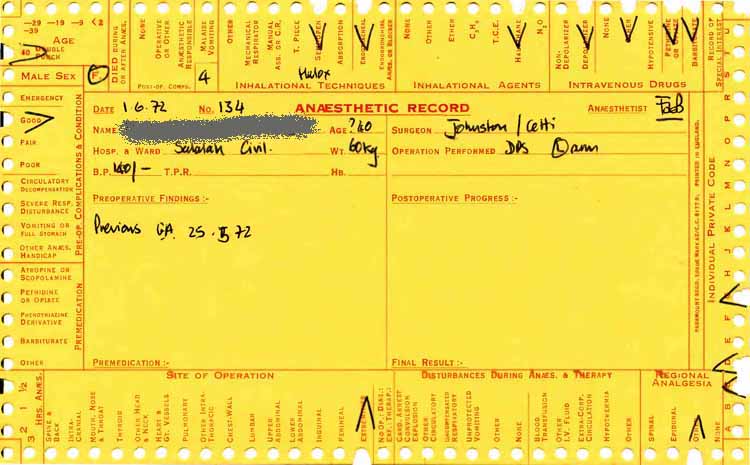 -29 -19 -9 <2
-39
AGE
40 DOUBLE PUNCH
MALE SEX F.
DIED DURING OR AFTER ANÆS.
NONE
OPERATIVE OR OTHER
ANÆSTHETIC RESPONSIBLE
MALAISE VOMITING
OTHER
POST-OP. COMPS.
4
MECHANICAL RESPIRATOR
MANUAL ASS. OR C.R.
T. PIECE
ABSORPTION
ENDOTRACHEAL
ENDOBRONCHIAL
INHALATIONAL TECHNIQUES
NONE
OTHER
ETHER
C₃H₆
T.C.E.
HALOTHANE
N₂O
INHALATIONAL AGENTS
NON-DEPOLARIZER
DEPOLARIZER
NONE
OTHER
HYPOTENSIVE
PETHIDINE OR OPIATE
BARBITURATE
INTRAVENOUS DRUGS
RECORD OF SPECIAL INTEREST
DATE 1.6.72 NO. 134 ANÆSTHETIC RECORD ANÆSTHETIST
NAME AGE ?40 SURGEON Johnston / Cetti
HOSP. & WARD Salalah Civil. WT. 60kg OPERATION PERFORMED DPS (L) arm
B.P. 140/- T.P.R. HB.
PREOPERATIVE FINDINGS :-
POSTOPERATIVE PROGRESS :-
Previous GA. 25.5.72
PREMEDICATION :-
FINAL RESULT :-
EMERGENCY
GOOD
FAIR
POOR
CIRCULATORY DECOMPENSATION
SEVERE RESP. DISTURBANCE
VOMITING OR FULL STOMACH
OTHER ANÆS. HANDICAP
PRE-OP. COMPLICATIONS & CONDITION
ATROPINE OR SCOPOLAMINE
PETHIDINE OR OPIATE
PHENOTHIAZINE DERIVATIVE
BARBITURATE
OTHER
PREMEDICATION
PRINTED IN ENGLAND.
INDIVIDUAL PRIVATE CODE
3 2 1 ½
HRS. ANÆS.
SITE OF OPERATION
SPINE & BACK
INTRA-CRANIAL
MOUTH, NOSE & THROAT
THYROID
OTHER HEAD & NECK
HEART & GT. VESSELS
PULMONARY
OTHER INTRA-THORACIC
CHEST-WALL
LUMBAR
UPPER ABDOMINAL
LOWER ABDOMINAL
INGUINAL
PERINEAL
EXTREMITIES
DISTURBANCES DURING ANÆS. & THERAPY
CARD. ARREST CONVULSION EXPLOSION
OTHER CIRCULATORY
UNCOMPENSATED RESPIRATORY
UNPROTECTED VOMITING
OTHER
BLOOD TRANSFUSION
OTHER I.V. FLUID
EXTRA-CORP. CIRCULATION
HYPOTHERMIA
OTHER
REGIONAL ANALGESIA
SPINAL
EPIDURAL
OTHER
NONE